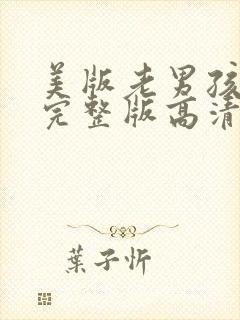 美版老男孩
完整版高清
葉子忻